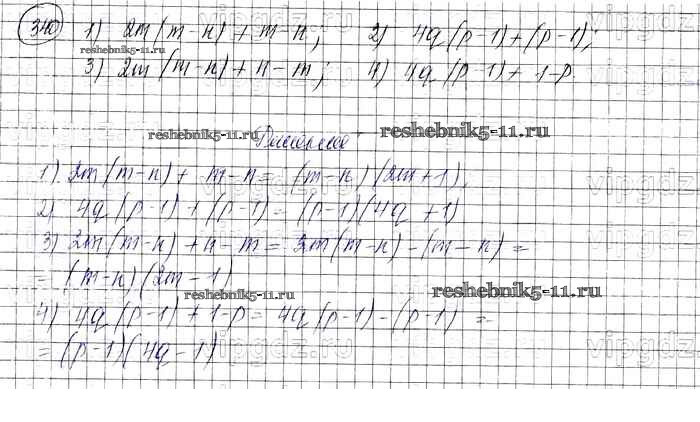 340 1) 2m(m-n)+m-n; 2) 4q(p-1)+(p-1);
reshebnik5-11.ru
3) 2m(m-n)+n-m; 4) 4q(p-1)+1-p.
reshebnik5-11.ru Решение reshebnik5-11.ru
1) 2m(m-n)+m-n=(m-n)(2m+1);
2) 4q(p-1)+(p-1)=(p-1)(4q+1)
3) 2m(m-n)+n-m=2m(m-n)-(m-n)=
=(m-n)(2m-1)
reshebnik5-11.ru reshebnik5-11.ru
4) 4q(p-1)+1-p=4q(p-1)-(p-1)=
=(p-1)(4q-1)
vipgdz.ru